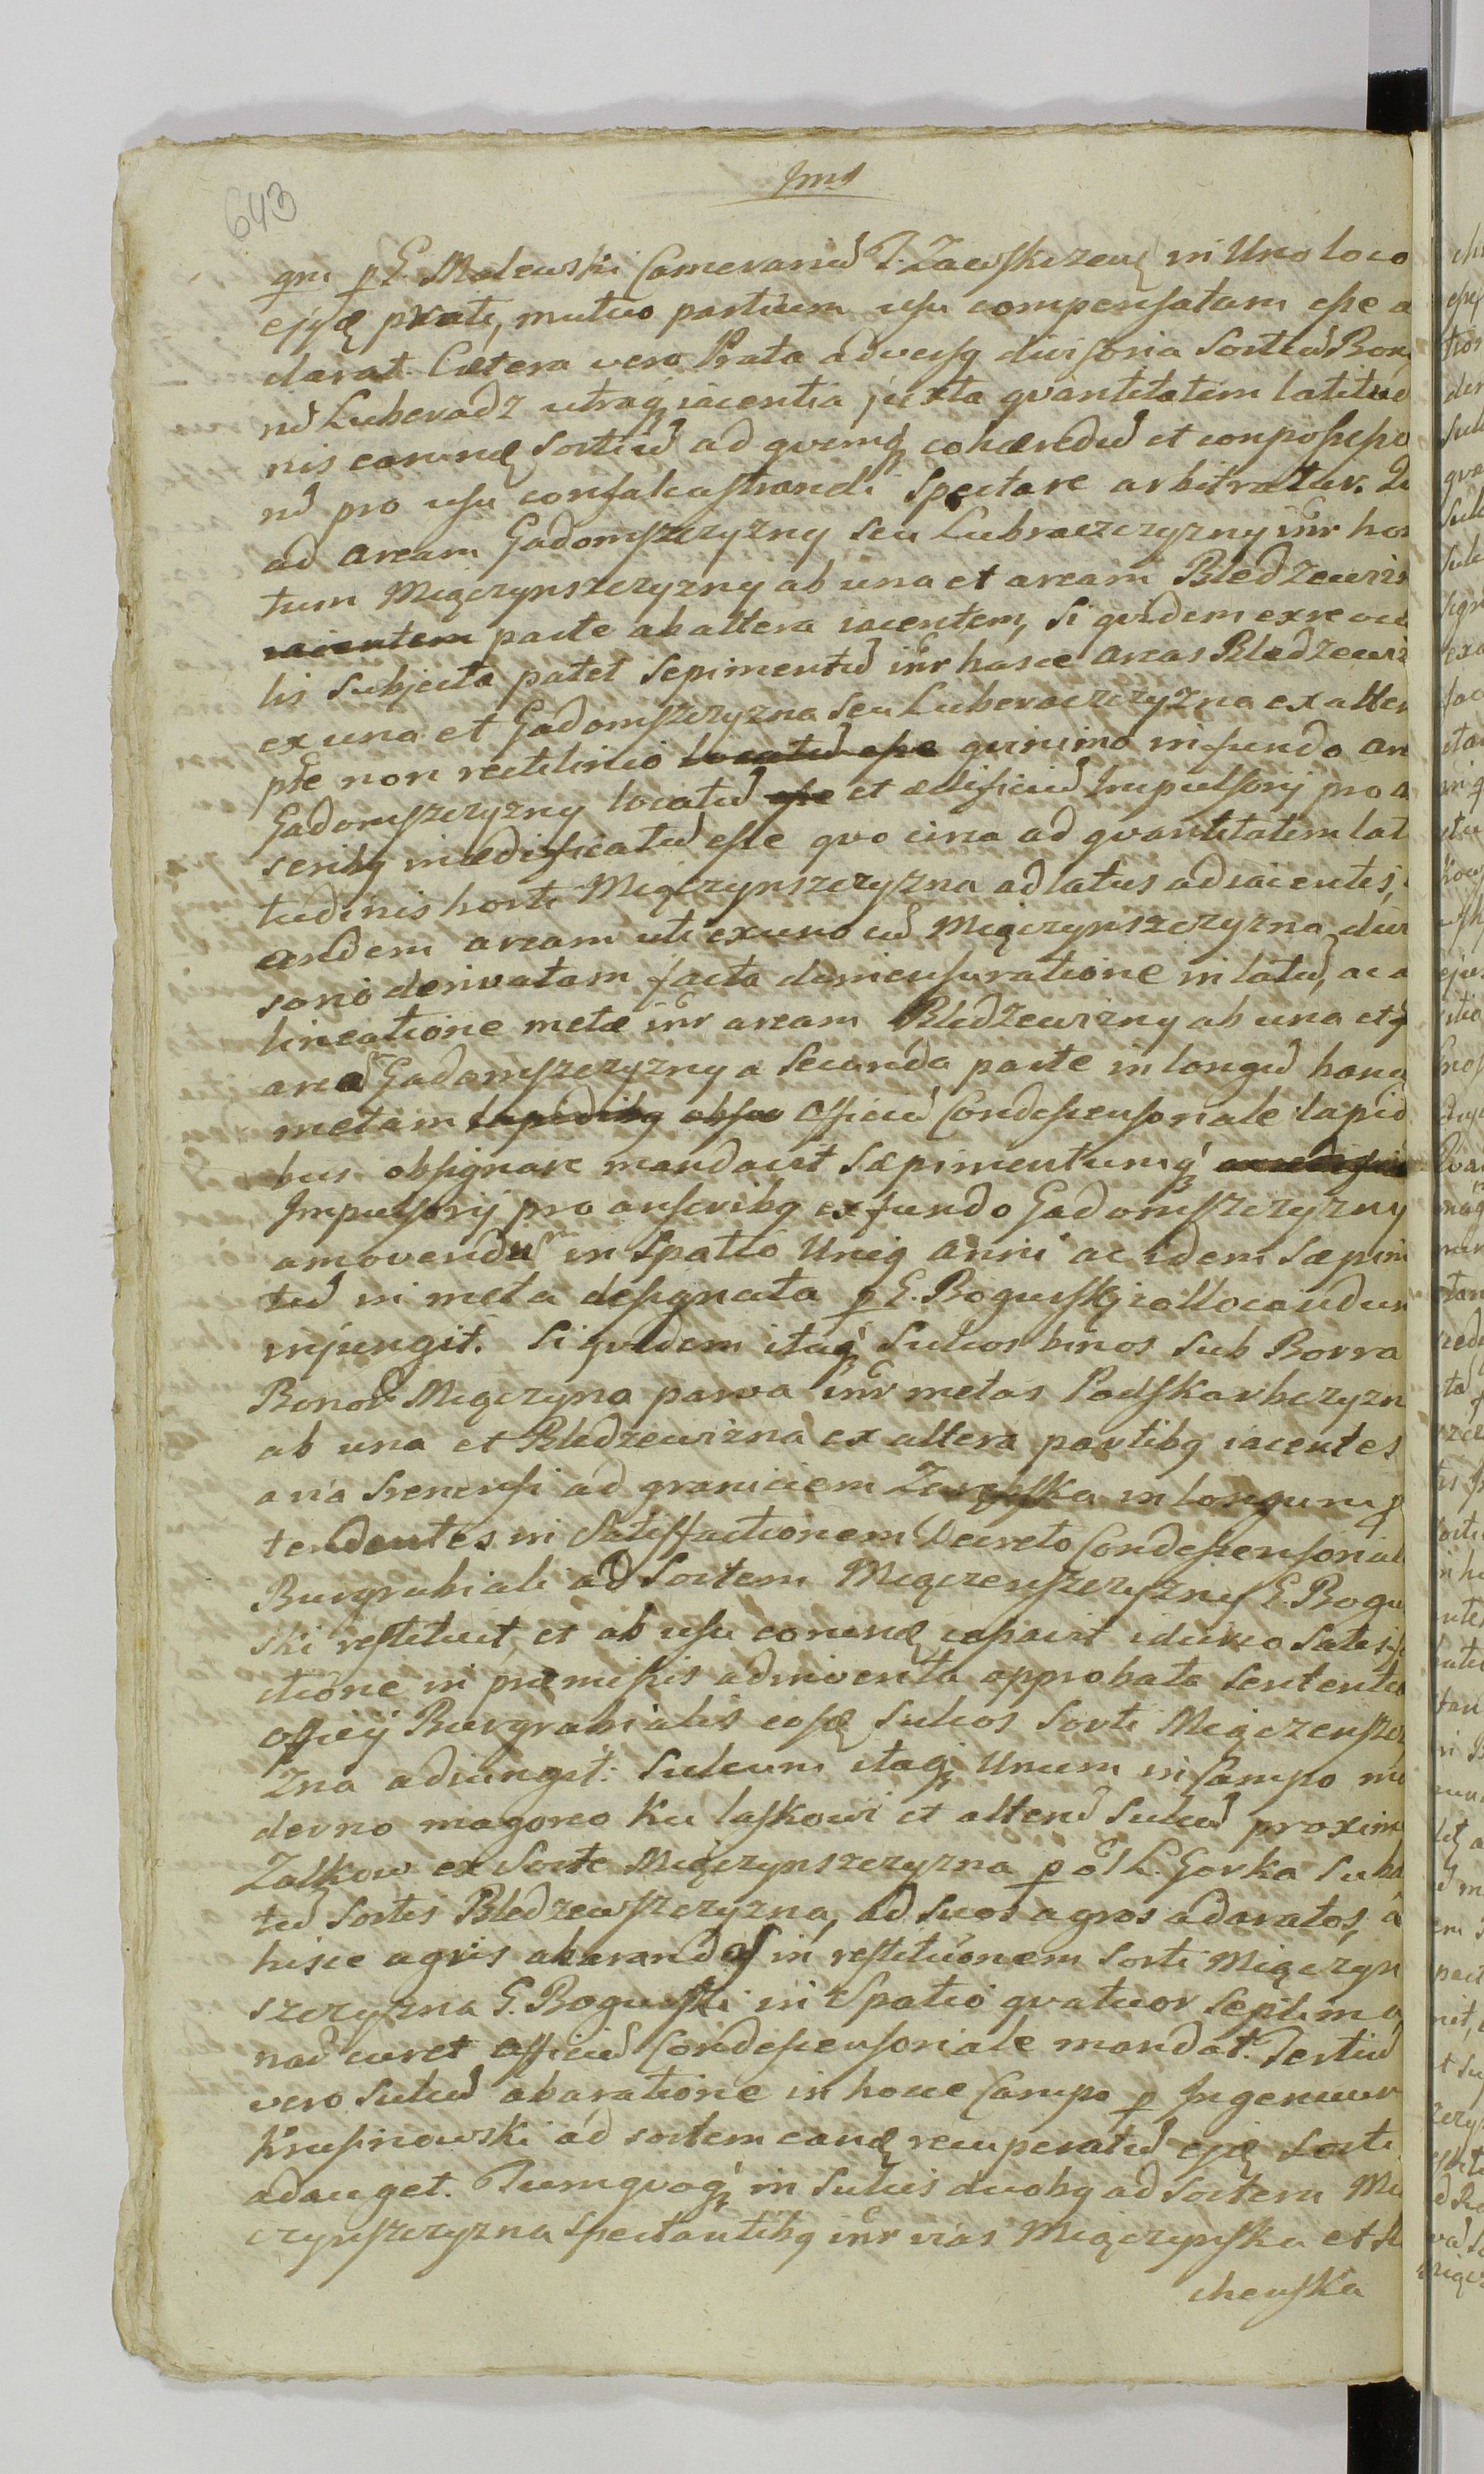 643
qni p G. Malewski Camerariu T. Zawskrzen in Uno loco
ejqe prati, mutuo partium usu compensatam esse a
darat. Cætera vero Prata adversq divisoria Sortiu Bon
ru Luberadz utraqz iacentia juxta qvantitatem latitud
nis earundz Sortiu ad qvemqz cohæredu et conpossesso
ru pro usu confalcastrandi Spectare arbitratur.
ad aream Gadomszczyzny seu Lubraczczyzny intr hor
tum Miączynszczyzny ab una et aream Bledzewizn
iacientem parte ab altera iacentem, Si qvidem ex re ocu
lis Subjecta patet Sepimentu intr hasce areas Bledzewiz
ex una et Gadomszczyzna seu Luberaczczyzna ex alter
pte non rectilineo locatu esse qvinimo in fundo are
Gadomszczyzny locatu esse et ædificiu Impulsorij pro an
seribq inædificatu esse qvo circa ad qvantitatem lati
tudinis horti Miączynszczyzna ad latus adiacentis,
andem aream uti ex uno cu Miączynszczyzna divi
sorio derivatam facta dimensuratione in latu, ac a
lineatione metæ intr aream Bledzewizny ab una et
area Gadomszczyzny a Secunda parte in longu hanc
metam lapidibq obsi Officiu Condescensoriale lapid
bus obsignare mandavit Sæpimentumqz
Impulsorij pro anseribq ex fundo Gadomszczyzny
amovendum in Spatio Uniq anni ac idem Sæpim
tu in meta designata p G. Bogusski collocandum
injungit. Si qvidem itaqz Sulcos binos Sub Borra
Bonor Miączyna parva intr metas Podskarbczyzn
ab una et Bledzewizna ex altera partibq iacentes
a via Srenensi ad graniciem Zarępska in longum p
tendentes in Satisfactionem Decreto Condescensorial
Burgrabiali ad Sortem Miączenszczyzny G. Bogu
ski restituit, et ab usu eorundz cessavit idcirco Satisfa
ctione in præmissis adinventa approbata Sententia
officij Burgrabialis eosdz Sulcos Sorti Miączenszczy
zna adiungit. Sulcum itaqz Unum in Campo mo
derno magoneo Ku laskowi et alteru Sulcu proxim
Zalkow ex Sorte Miączynszczyzna p ol L. Gorka Suba
tu Sortis Bledzewszczyzna, ad Suos agros adaratos, a
hisce agris abarandos in restitutionem Sorti Miączyn
szczyzna G. Bogusski in Spatio qvatuor Septima
nar curet Officiu Condescensoriale mandat. Tertiu
vero Sulcu abaratione in hocce Campo p Ingenuum
Krusinowski ad sortem eandz recuperatu ejdz Sorti
adauget. Tumqvoqz in Sulcis duobq ad Sortem Mią
czynszczyzna Spectantibq intr vias Miączynska et
chenska